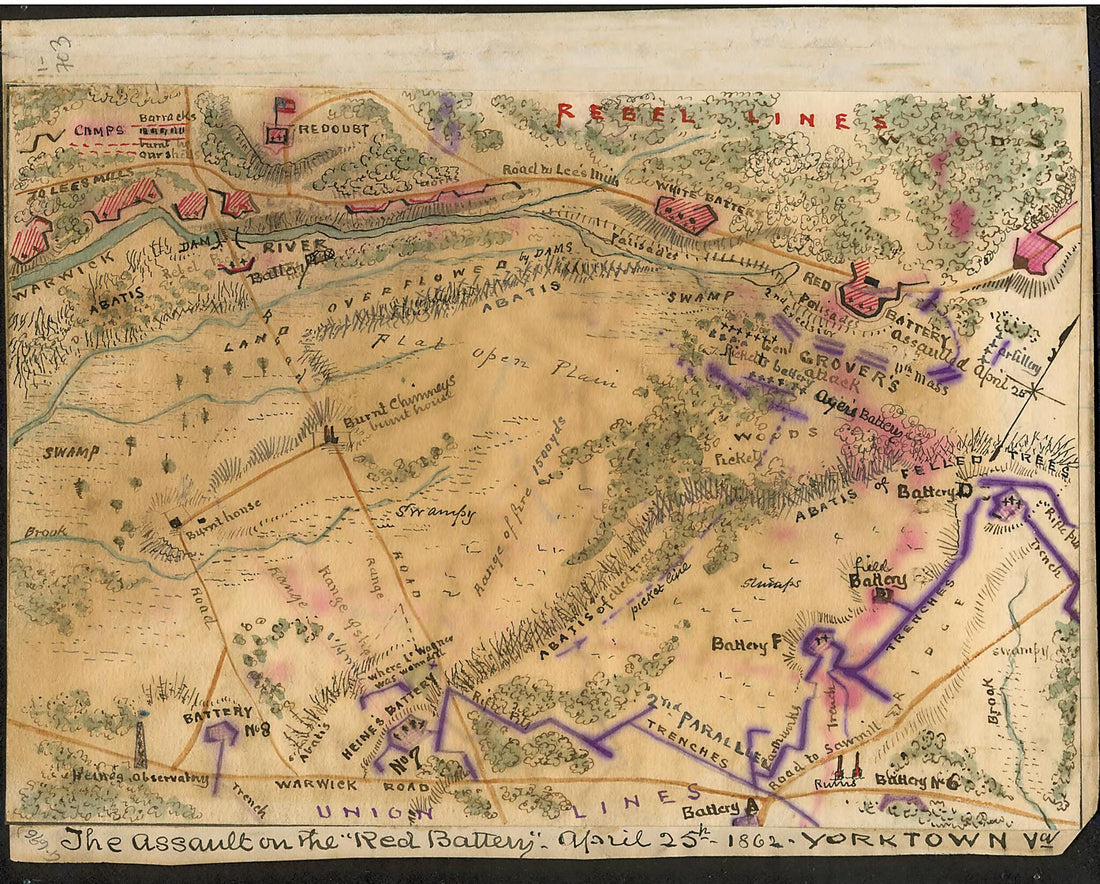 1-
703
CAMPS
Barracks
burnt by
our shell
REDOUBT
REBEL LINES
WOODS
TO LEE'S MILLS
Road to Lees Mill
WHITE BATTERY
WARWICK
DAM
RIVER
Rebel
Battery
Palisades
ABATIS
OVERFLOWED
by DAMS
LAND
ABATIS
Road
SWAMP
RED
BATTERY
2nd
Palisades
Excelsior
assaulted April 25th
Artillery
GROVER'S
attack
11th Mass
Picket
battery
Ager's Battery
Flat open Plain
Burnt Chimneys
burnt house
WOODS
Picket
SWAMP
Range of fire 1500yds
ABATIS of FELLED TREES
Battery D
Rifle pit
Trench
Burnt house
Swampy
Brook
Road
Range
Range of shell
1 1/4 m
Range
ROAD
ABATIS of
picket line
stumps
field
Battery
TRENCHES
RIDGE
swampy
Brook
Battery F
where Lt Wagner
was wounded
Abatis
HEINE'S BATTERY
No 7
Rifle Pit
2nd PARALLEL
TRENCHES
Earthworks
Trench
BATTERY
No 8
Heines Observatory
Trench
WARWICK ROAD
Road to Sawmill
Ruins
Battery No 6
Battery A
UNION LINES
The Assault on the "Red Battery". April 25th 1862. YORKTOWN Va